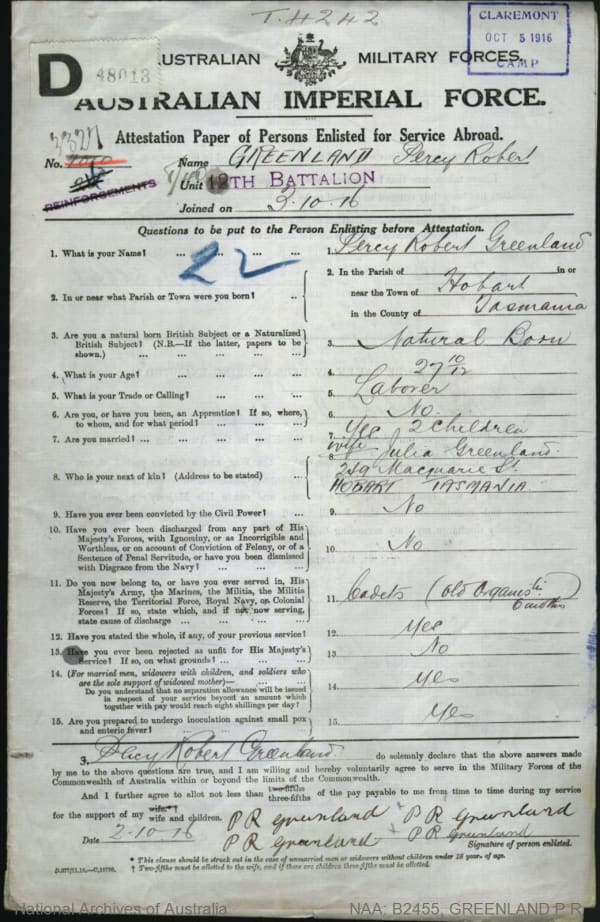 T.4242
CLAREMONT
OCT 5 1916
CAMP
D 48013
AUSTRALIAN MILITARY FORCES.
AUSTRALIAN IMPERIAL FORCE.
Attestation Paper of Persons Enlisted for Service Abroad.
3327
No. Name GREENLAND Percy Robert
REINFORCEMENTS
Unit 12TH BATTALION
Joined on 2.10.16
Questions to be put to the Person Enlisting before Attestation.
1. What is your Name? ... ... ... ... 1. Percy Robert Greenland
22
2. In or near what Parish or Town were you born? ... 2. In the Parish of in or
near the Town of Hobart
in the County of Tasmania
3. Are you a natural born British Subject or a Naturalized
British Subject? (N.B.—If the latter, papers to be
shown.) ... ... ... ... 3. Natural Born
4. What is your Age? ... ... ... ... 4. 27 10/12
5. What is your Trade or Calling? ... ... ... 5. Laborer
6. Are you, or have you been, an Apprentice? If so, where,
to whom, and for what period? ... ... ... 6. No.
7. Are you married? ... ... ... ... 7. Yes 2 Children
8. Who is your next of kin? (Address to be stated) ... 8. Wife Julia Greenland
249 Macquarie St.
HOBART TASMANIA
9. Have you ever been convicted by the Civil Power? ... 9. No
10. Have you ever been discharged from any part of His
Majesty's Forces, with Ignominy, or as Incorrigible and
Worthless, or on account of Conviction of Felony, or of a
Sentence of Penal Servitude, or have you been dismissed
with Disgrace from the Navy? ... ... ... 10. No
11. Do you now belong to, or have you ever served in, His
Majesty's Army, the Marines, the Militia, the Militia
Reserve, the Territorial Force, Royal Navy, or Colonial
Forces? If so, state which, and if not now serving,
state cause of discharge ... ... ... 11. Cadets (old Organis'tn)
12. Have you stated the whole, if any, of your previous service? 12. Yes
13. Have you ever been rejected as unfit for His Majesty's
Service? If so, on what grounds? ... ... 13. No
14. (For married men, widowers with children, and soldiers who
are the sole support of widowed mother)— ... ...
Do you understand that no separation allowance will be issued
in respect of your service beyond an amount which
together with pay would reach eight shillings per day? 14. Yes
15. Are you prepared to undergo inoculation against small pox
and enteric fever? ... ... ... 15. Yes
3, Percy Robert Greenland do solemnly declare that the above answers made
by me to the above questions are true, and I am willing and hereby voluntarily agree to serve in the Military Forces of the
Commonwealth of Australia within or beyond the limits of the Commonwealth.
And I further agree to allot not less than two-fifths three-fifths of the pay payable to me from time to time during my service
for the support of my wife* † wife and children. P R Greenland P R Greenland
Date 2-10-16 P R Greenland P R Greenland
Signature of person enlisted.
* This clause should be struck out in the case of unmarried men or widowers without children under 18 years of age.
† Two-fifths must be allotted to the wife, and if there are children three-fifths must be allotted.
National Archives of Australia NAA: B2455, GREENLAND P R